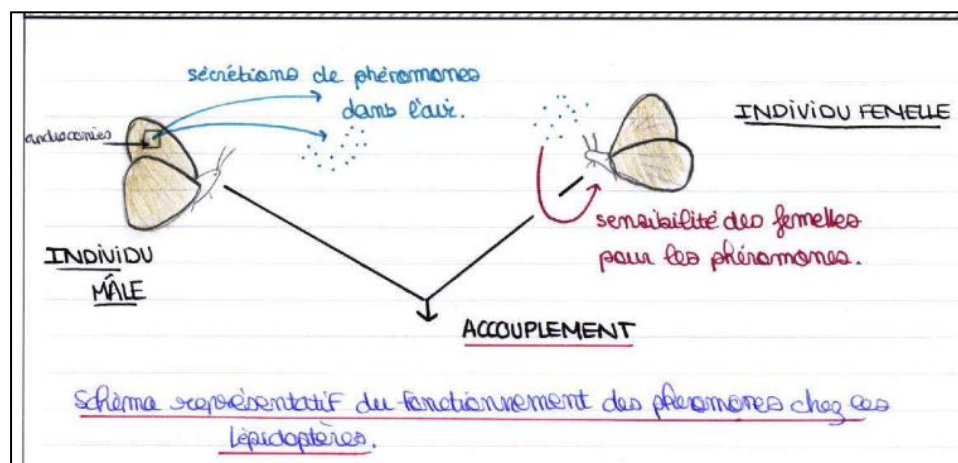 sécrétions de phéromones
dans l'air.
androconies
INDIVIDU FEMELLE
sensibilité des femelles
pour les phéromones.
INDIVIDU
MÂLE
ACCOUPLEMENT
Schéma représentatif du fonctionnement des phéromones chez ces
lépidoptères.